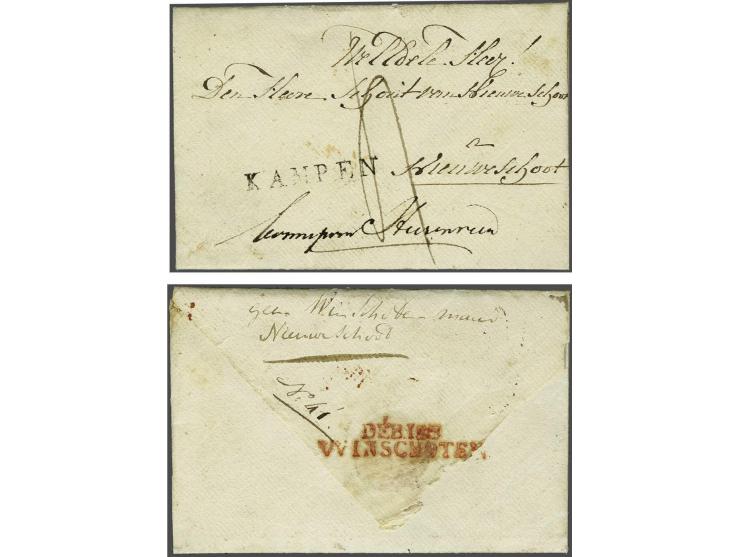 WelEdele Heer!
Den Heere Schout van Nieuweschoot
KAMPEN Nieuweschoot
Heerenveen
geen Winschoten maar
Nieuweschoot
No. 41.
DÉBISÉ
WINSCHOTEN